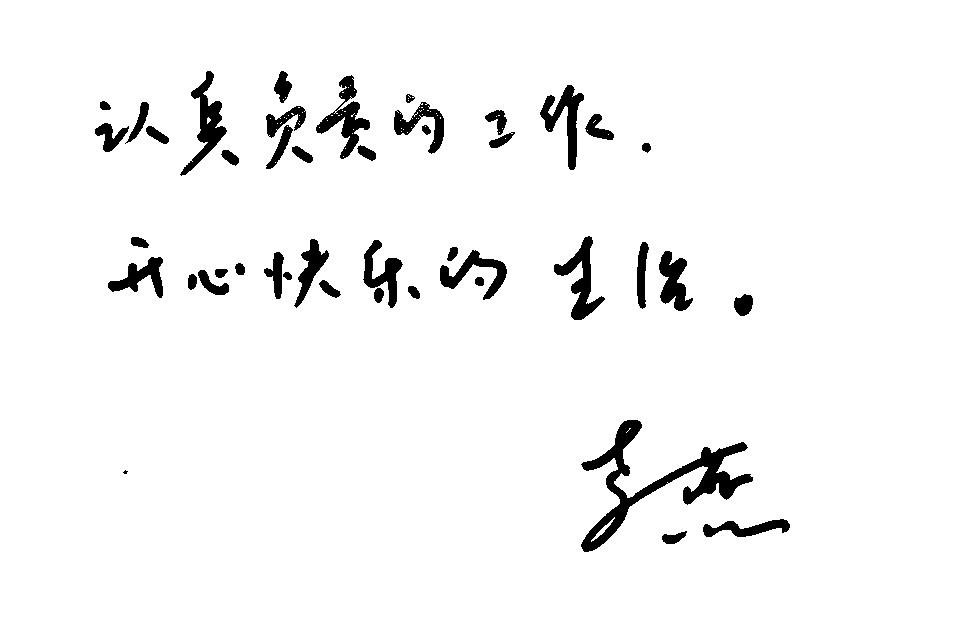 认真负责的工作.
开心快乐的生活。
李燕